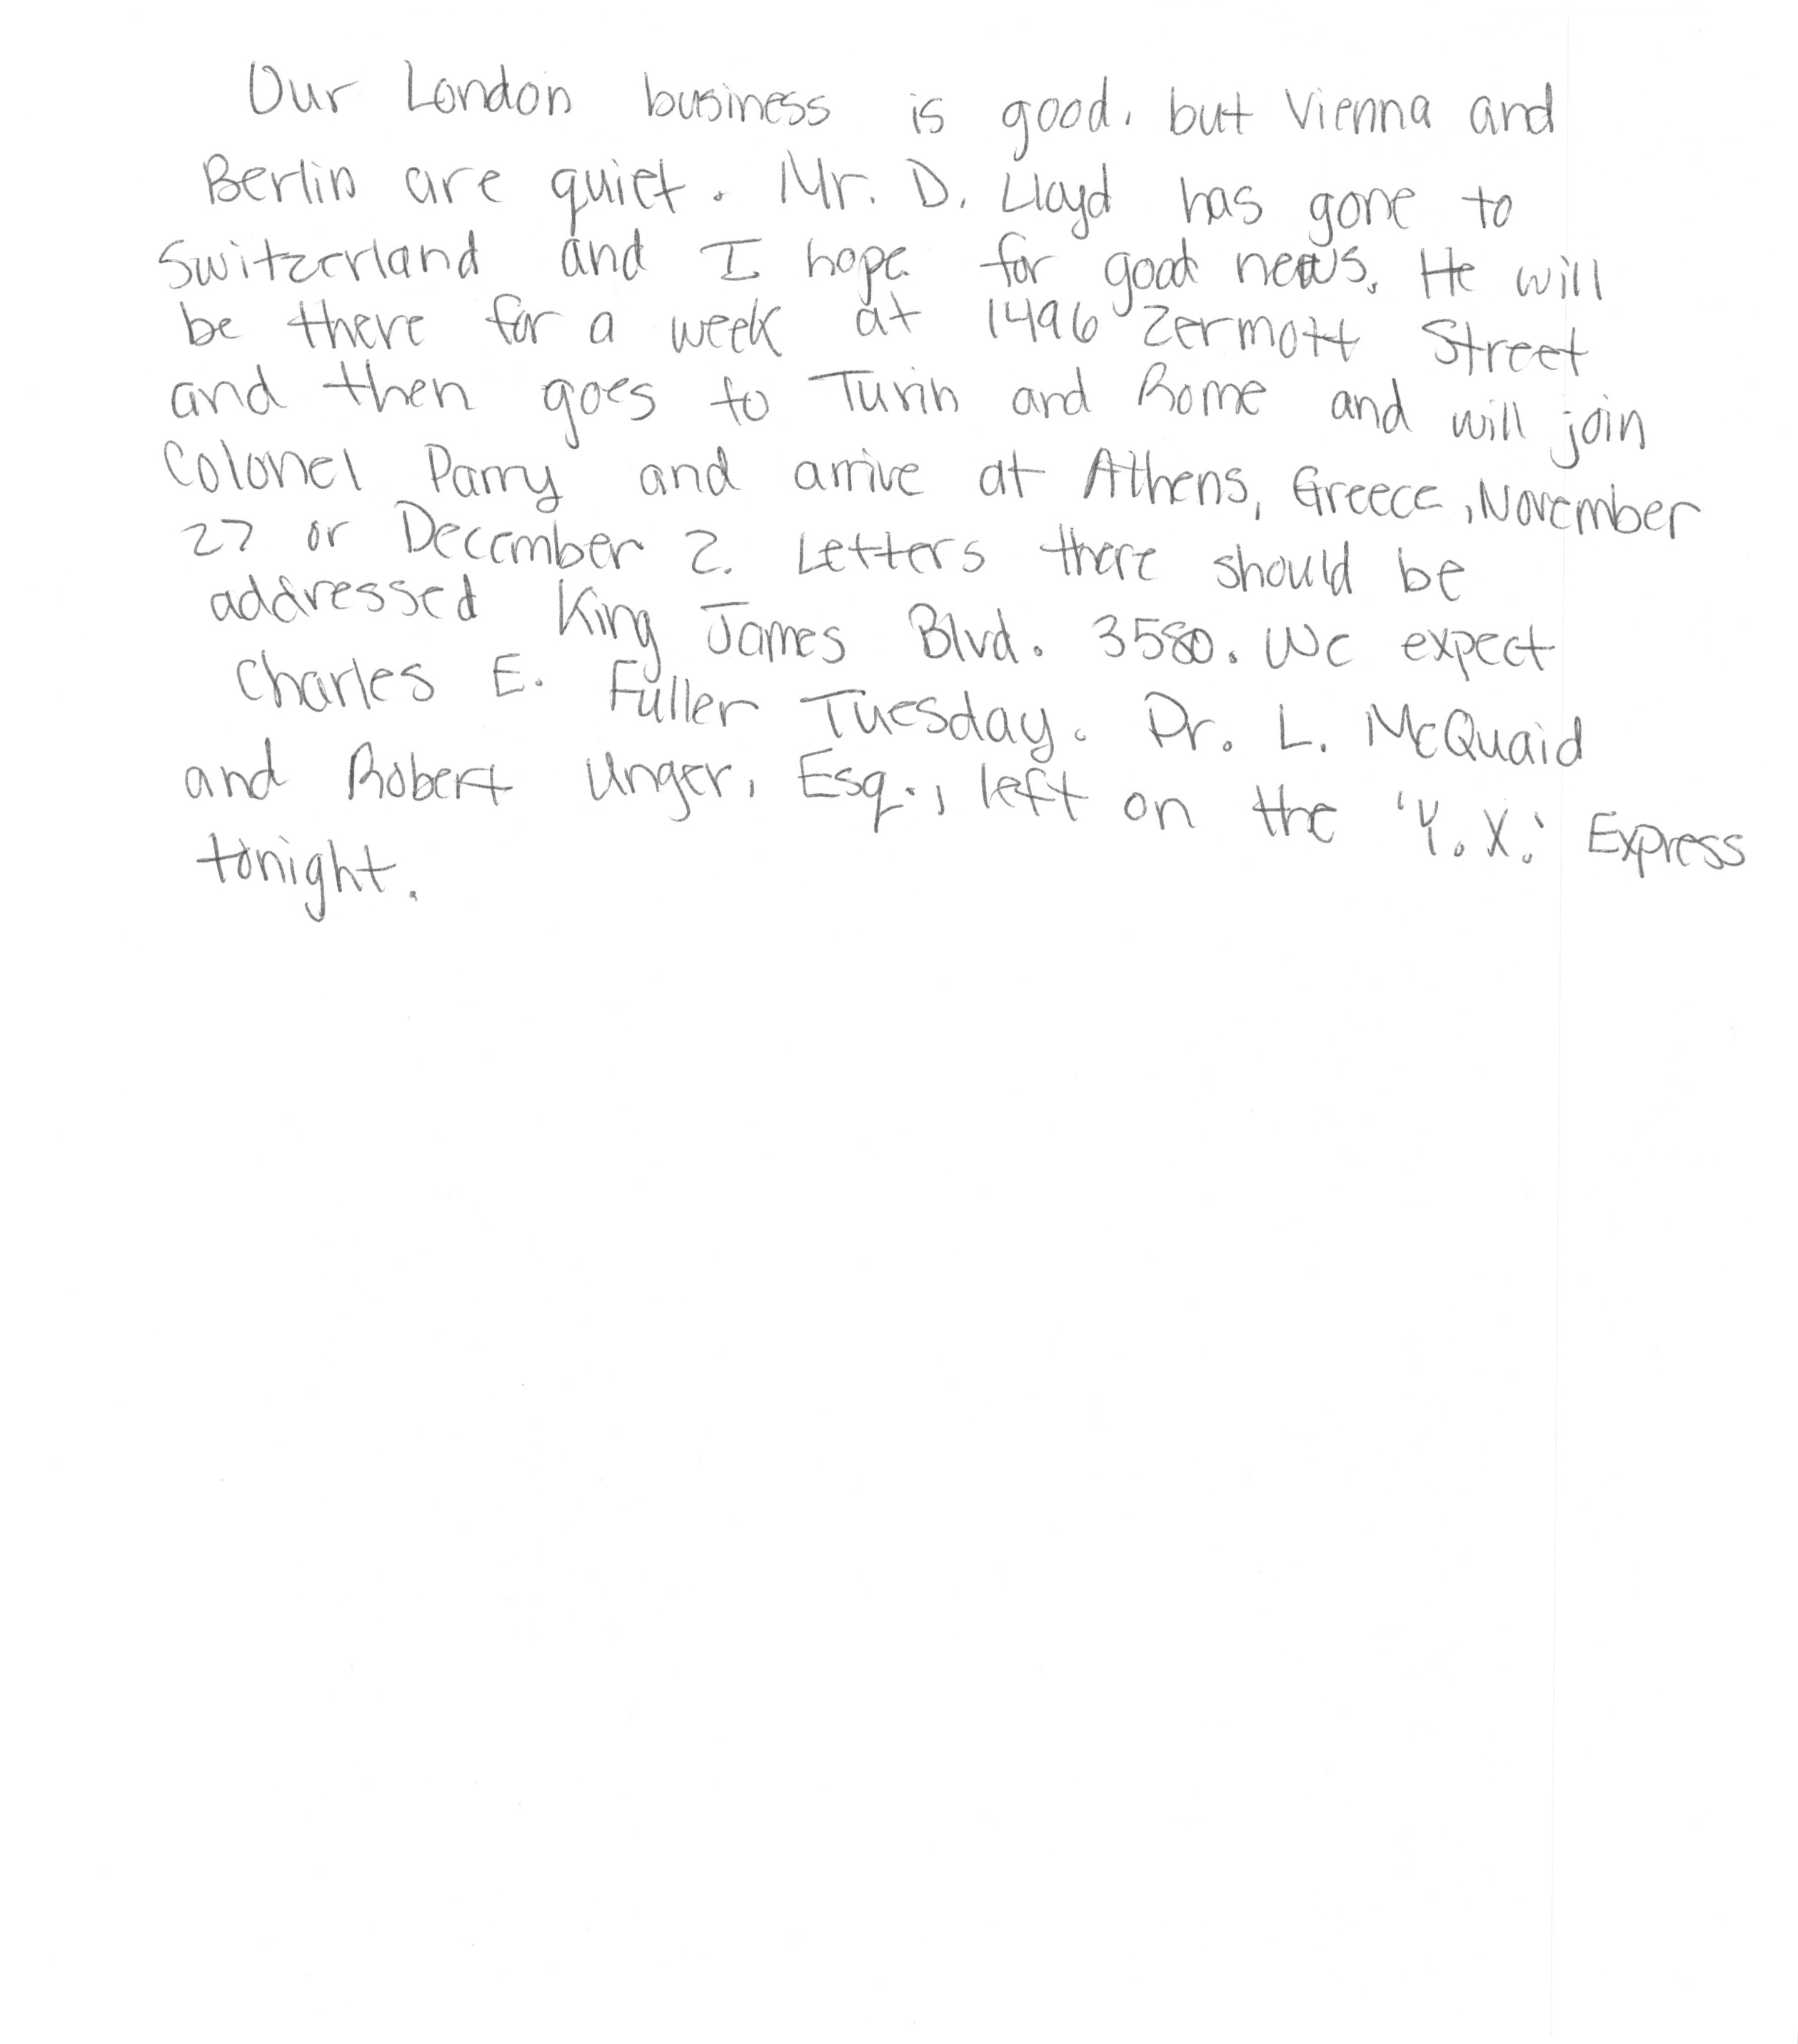 Our London business is good, but Vienna and
Berlin are quiet. Mr. D. Lloyd has gone to
Switzerland and I hope for good news. He will
be there for a week at 1496 Zermott Street
and then goes to Turin and Rome and will join
Colonel Parry and arrive at Athens, Greece, November
27 or December 2. Letters there should be
addressed King James Blvd. 3580. We expect
Charles E. Fuller Tuesday. Dr. L. McQuaid
and Robert Unger, Esq., left on the 'Y.X.' Express
tonight.